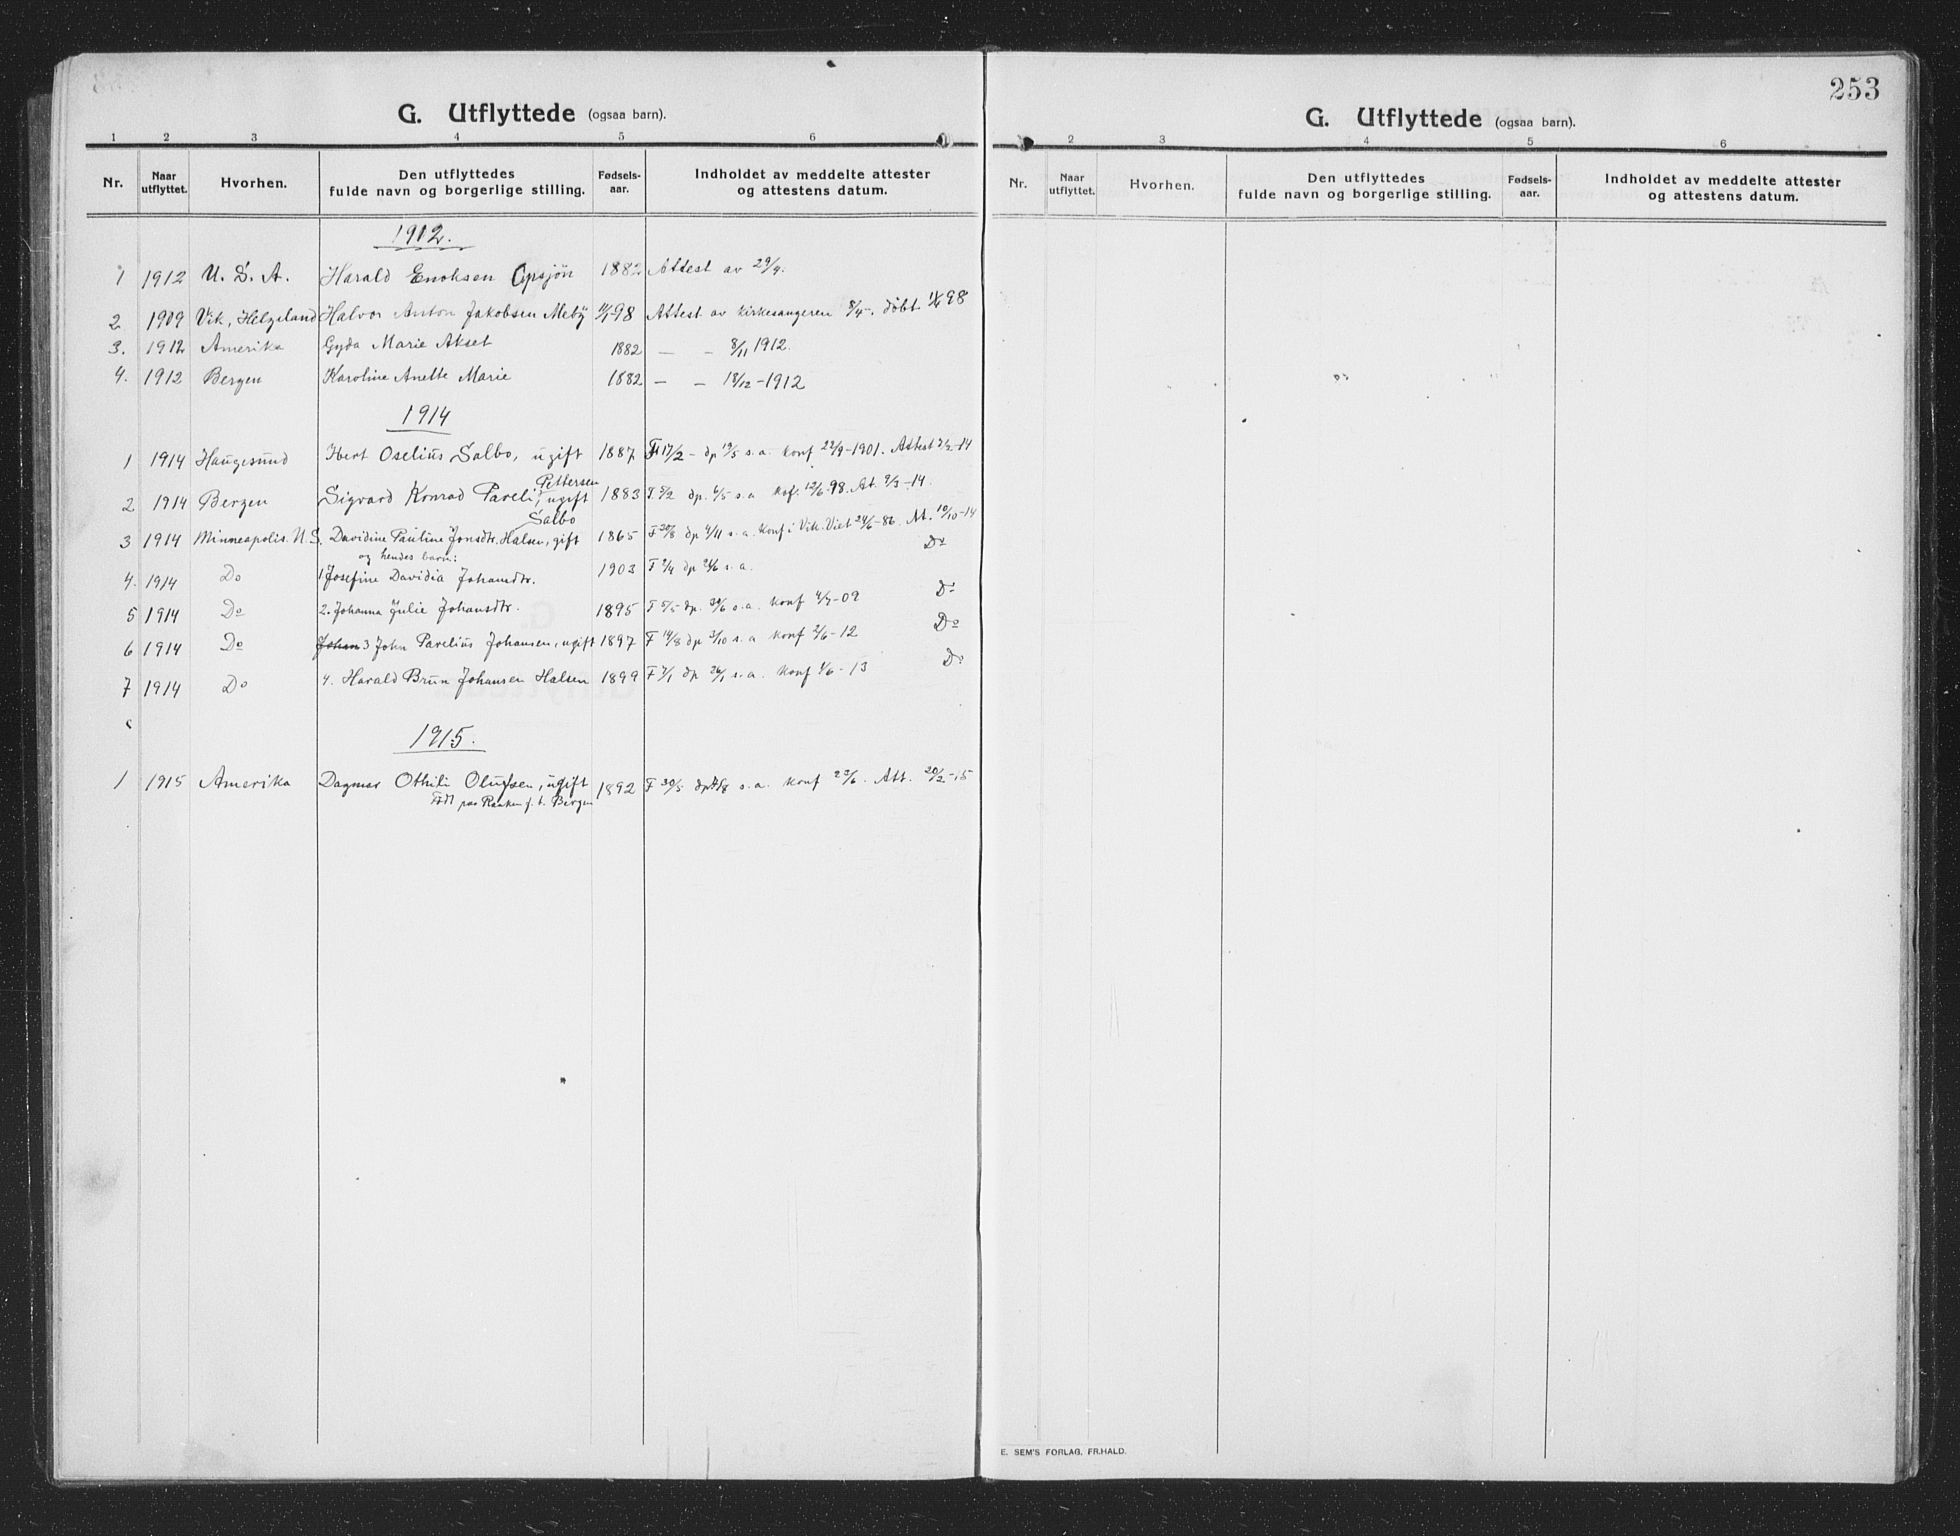 G. Utflyttede (ogsaa barn).
1 2 3 4 5 6
Nr. Naar utflyttet. Hvorhen. Den utflyttedes fulde navn og borgerlige stilling. Fødsels-aar. Indholdet av meddelte attester og attestens datum.
1912.
1 1912 U. S. A. Harald Enoksen Opsjøn 1882 Attest av 29/4.
2 1909 Vik, Helgeland Halvor Anton Jakobsen Meby 98 Attest av kirkesangeren 8/4. døbt 98
3. 1912 Amerika Gyda Marie Akset 1882 — - 8/11 1912.
4. 1912 Bergen Karoline Anette Marie 1882 — - 18/12-1912
1914
1 1914 Haugesund Hert Oselius Salbo, ugift 1887 F 17/2 - dp 19/5 s.a. konf 22/9-1901. Attest -14
Pettersen
2 1914 Bergen Sigvard Konrad Pareli, ugift 1883 F. 5/2 dp. 6/5 s.a. Kof. 12/6-98. At. 9/3-14.
Salbo
3 1914 Minneapolis. N.S. Davidine Pauline Jonsdtr. Halsen, gift 1865 F 20/8 dp 4/11 s.a. konf i Vik. Viet 24/6-86. At. 10/10-14
og hendes barn:
4. 1914 Do 1 Josefine Davidia Johansdtr. 1903 F 2/4 dp 24/6 s.a. Do
5 1914 Do 2. Johanna Julie Johansdtr. 1895 F 5/5 dp. 30/6 s.a. konf 4/7-09 Do
6 1914 Do Johan 3 John Parelius Johansen, ugift 1897 F 14/8 dp 3/10 s.a konf 2/6-12 Do
7 1914 Do 4. Harald Brun Johansen Halsen 1899 F 7/1 dp 26/1 s.a. konf 1/6-13 Do
1915.
1 1915 Amerika Dagmar Othili Olufsen, ugift 1892 F 30/5 dp 7/8 s.a. konf 22/6. Att. 20/2-15
Født paa Raaken f. t. Bergen
253
G. Utflyttede (ogsaa barn).
2 3 4 5 6
Nr. Naar utflyttet. Hvorhen. Den utflyttedes fulde navn og borgerlige stilling. Fødsels-aar. Indholdet av meddelte attester og attestens datum.
E. SEM'S FORLAG, FR.HALD.